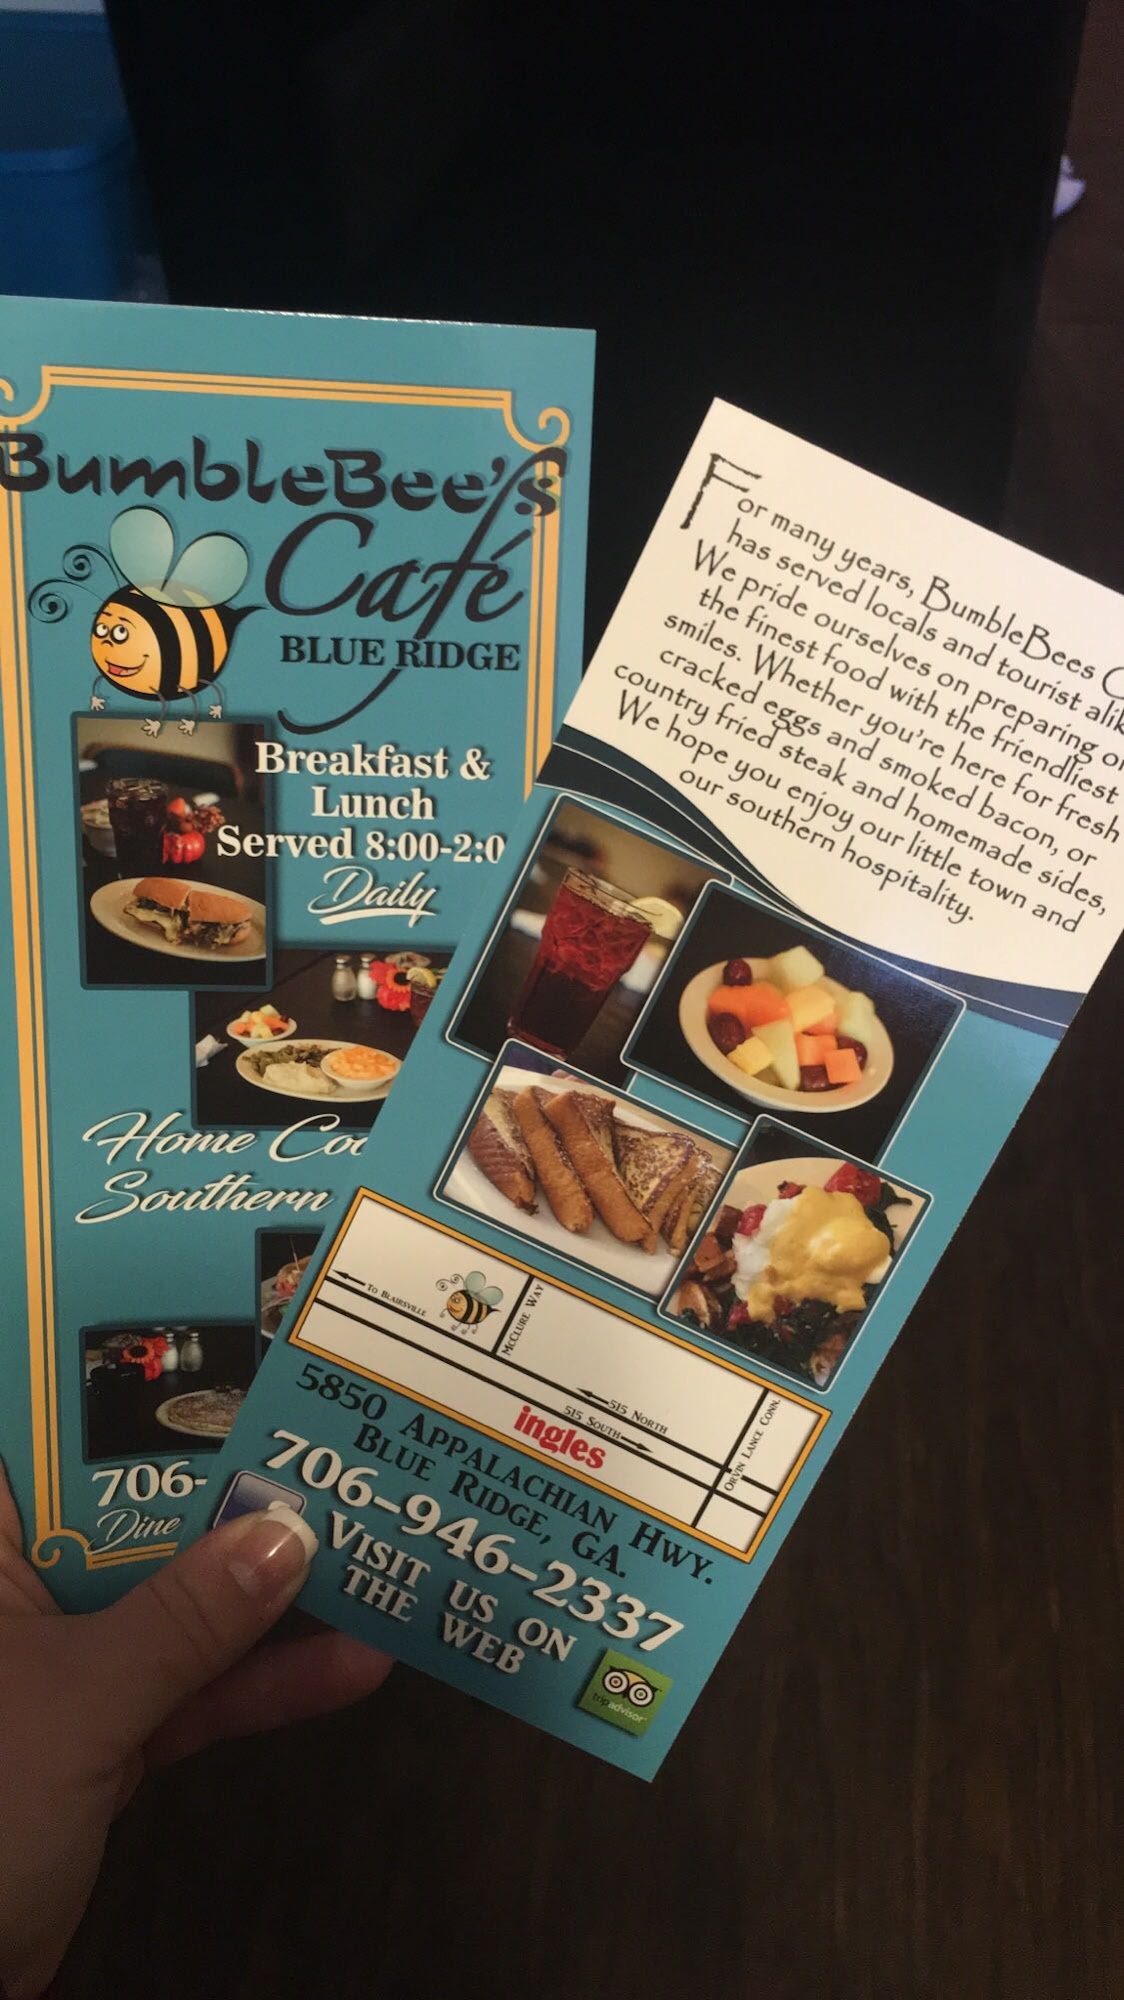 BumbleBee's
Café
BLUE RIDGE
Breakfast &
Lunch
Served 8:00-2:0
Daily
Home Coo
Southern
706-
Dine
For many years, BumbleBees C
has served locals and tourist alik
We pride ourselves on preparing on
the finest food with the friendliest
smiles. Whether you're here for fresh
cracked eggs and smoked bacon, or
country fried steak and homemade sides,
We hope you enjoy our little town and
our southern hospitality.
To Blairsville
McClure Way
515 North
515 South
ingles
Orvin Lance Conn.
5850 Appalachian Hwy.
Blue Ridge, GA.
706-946-2337
Visit us on
the web
tripadvisor